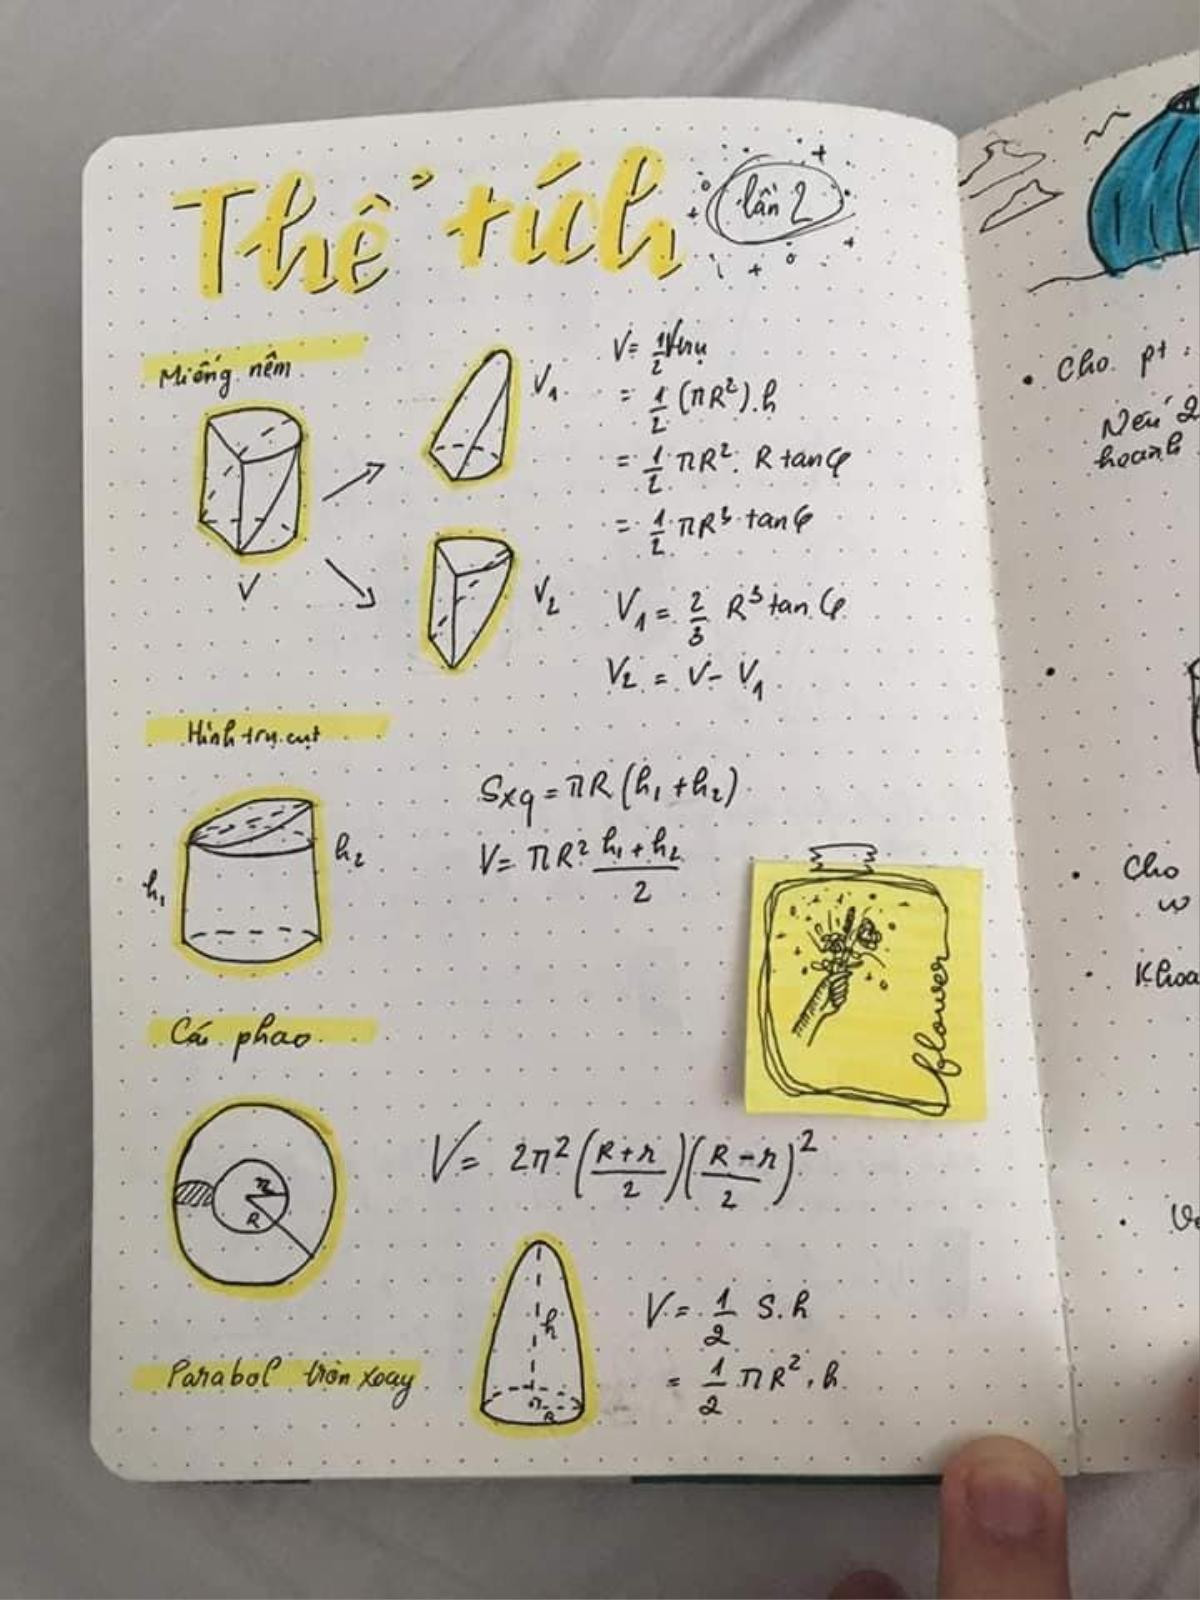 Thể tích
lần 2
Miếng nêm
V
V₁
V₂
V = 1/2 Vtrụ
= 1/2 (πR²).h
= 1/2 πR². R tanφ
= 1/2 πR³ tanφ
V₁ = 2/3 R³ tanφ
V₂ = V - V₁
Hình trụ cụt
h₁
h₂
Sxq = πR (h₁ + h₂)
V = πR² (h₁ + h₂)/2
flower
Cái phao
r
R
V = 2π² ((R+r)/2) ((R-r)/2)²
Parabol tròn xoay
h
R
V = 1/2 S.h
= 1/2 πR².h
Cho pt:
Nếu
hoành
Cho
Khoả